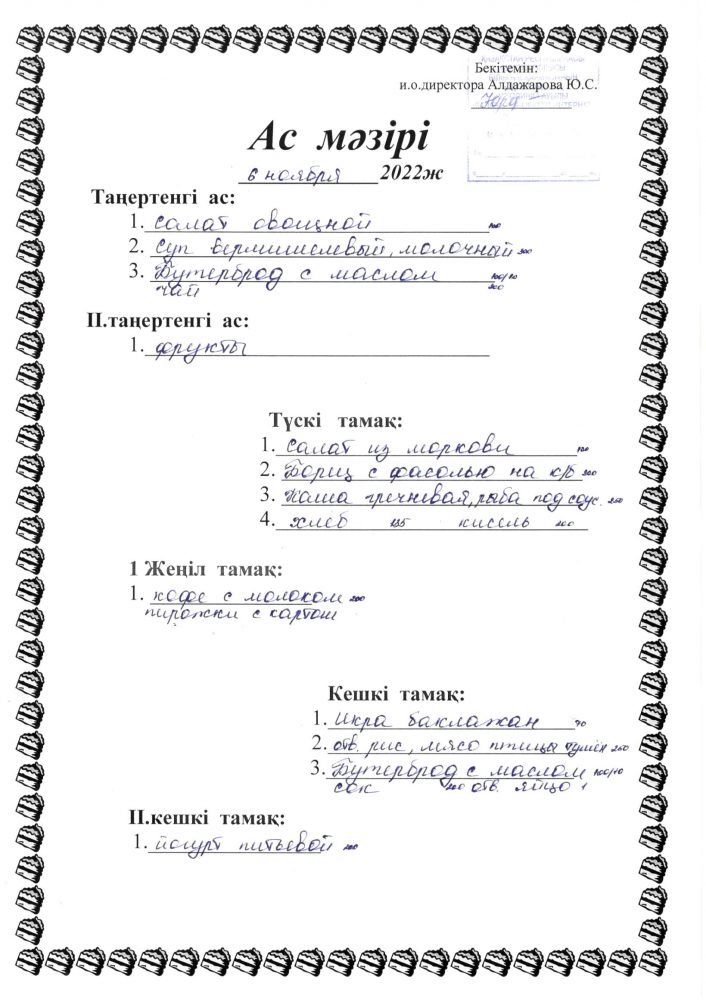 Бекітемін:
и.о.директора Алдажарова Ю.С.
Ас мәзірі
6 ноября 2022ж
Таңертенгі ас:
1. салат овощной 100
2. Суп вермишелевый, молочный 300
3. Бутерброд с маслом 100/10
чай 200
II.таңертенгі ас:
1. фрукты
Түскі тамақ:
1. салат из моркови 100
2. Борщ с фасолью на к/б 300
3. Каша гречневая, рыба под соус. 250
4. хлеб 135 кисель 200
1 Жеңіл тамақ:
1. кофе с молоком 200
пирожки с картош
Кешкі тамақ:
1. Икра баклажан 70
2. отв. рис, мясо птицы 250
3. Бутерброд с маслом 100/10
сок 200 отв. яйцо 1
II.кешкі тамақ:
1. йогурт питьевой 200